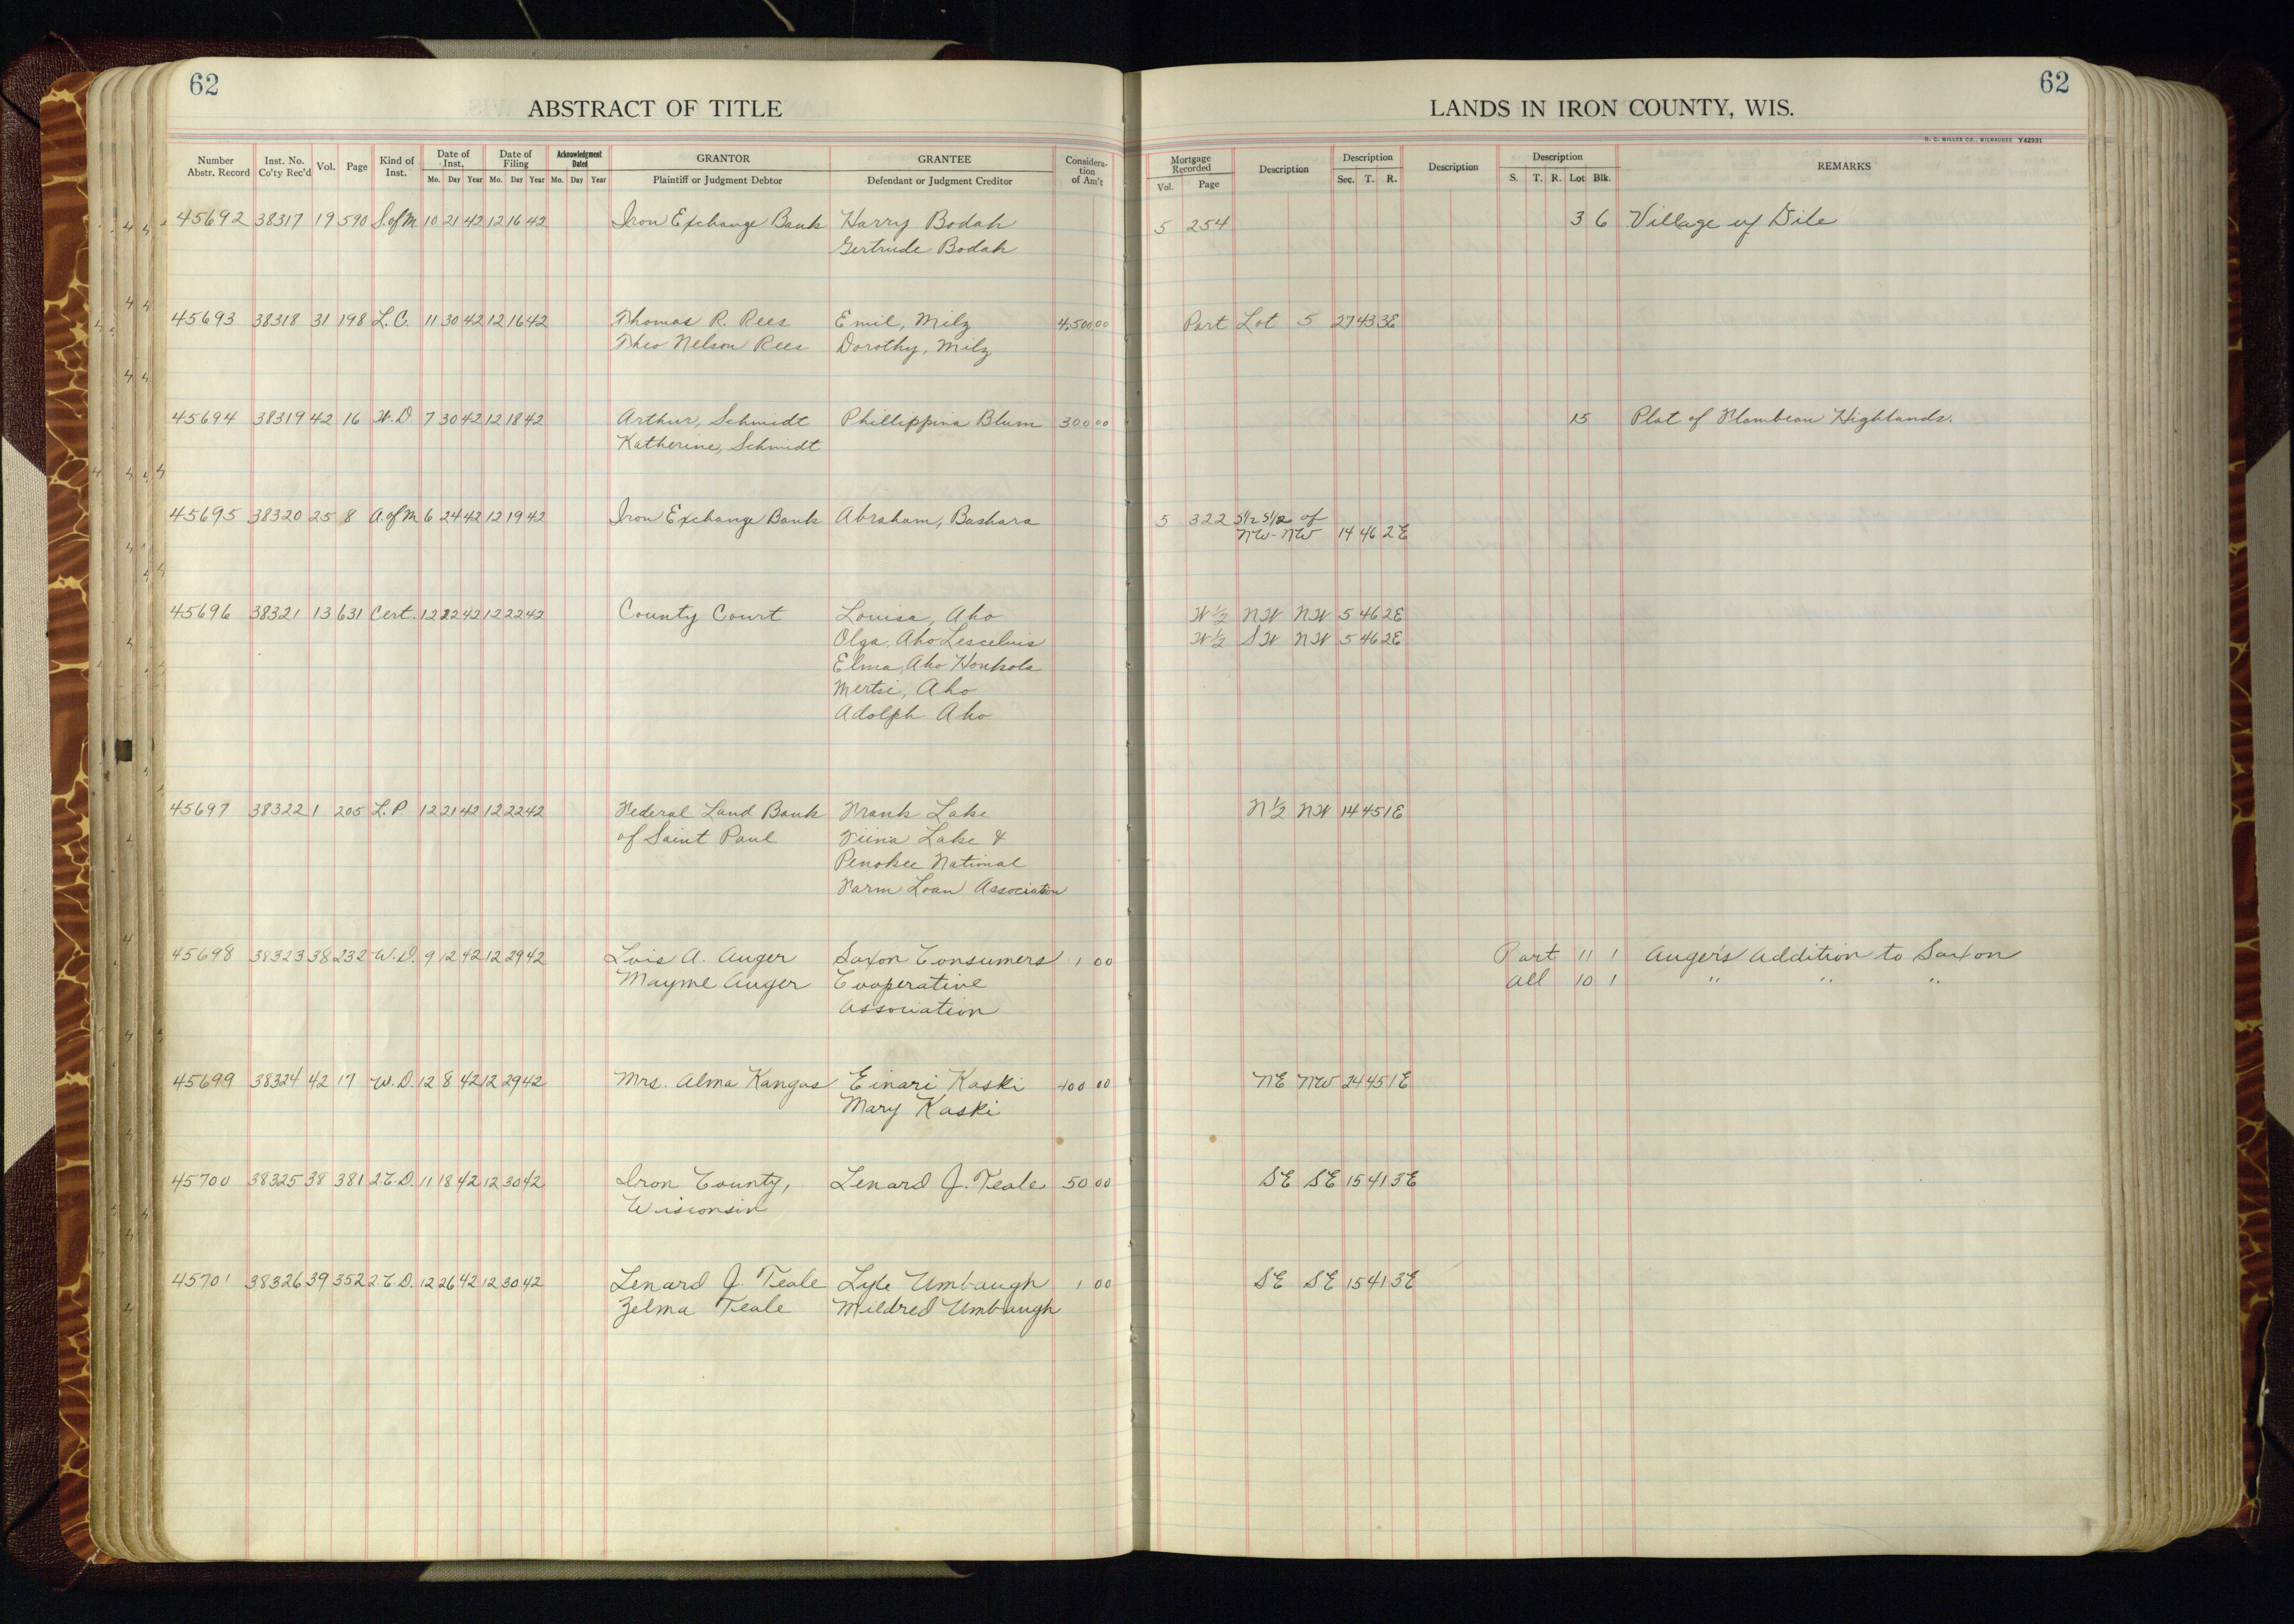 62
62
ABSTRACT OF TITLE
LANDS IN IRON COUNTY, WIS.
H. C. MILLER CO., MILWAUKEE Y42931
Number Abstr. Record Inst. No. Co'ty Rec'd Vol. Page Kind of Inst. Date of Inst. Mo. Day Year Date of Filing Mo. Day Year Acknowledgment Dated Mo. Day Year GRANTOR Plaintiff or Judgment Debtor GRANTEE Defendant or Judgment Creditor Considera-tion of Am't Mortgage Recorded Vol. Page Description Description Sec. T. R. Description Description S. T. R. Lot Blk. REMARKS
45692 38317 19 590 S.ofM. 10 21 42 12 16 42 Iron Exchange Bank Harry Bodah 5 254 3 6 Village of Gile
Gertrude Bodah
45693 38318 31 198 L.C. 11 30 42 12 16 42 Thomas R. Rees Emil, Milz 4,500 00 Part Lot 5 27 43 3E
Theo Nelson Rees Dorothy, Milz
45694 38319 42 16 W.D. 7 30 42 12 18 42 Arthur, Schmidt Phillippina Blum 300 00 15 Plat of Flambeau Highlands.
Katherine, Schmidt
45695 38320 25 8 A.ofM 6 24 42 12 19 42 Iron Exchange Bank Abraham, Bashara 5 322 S1/2 S1/2 of
NW-NW 14 46 2E
45696 38321 13 631 Cert. 12 22 42 12 22 42 County Court Louisa, Aho W 1/2 NW NW 5 46 2E
Olga, Aho Lescelius W 1/2 SW NW 5 46 2E
Elma, Aho Honkola
Mertsi, Aho
Adolph Aho
45697 38322 1 205 L.P. 12 21 42 12 22 42 Federal Land Bank Frank Lake N 1/2 NW 14 45 1E
of Saint Paul Fiina Lake &
Penokee National
Farm Loan Association
45698 38323 38 232 W.D. 9 12 42 12 29 42 Lois A. Auger Saxon Consumers 1 00 Part 11 1 Auger's Addition to Saxon
Mayme Auger Cooperative All 10 1 " " "
Association
45699 38324 42 17 W.D. 12 8 42 12 29 42 Mrs. Alma Kangas Einari Kaski 400 00 NE NW 24 45 1E
Mary Kaski
45700 38325 38 381 2.C.D. 11 18 42 12 30 42 Iron County, Lenard J. Teale 50 00 SE SE 15 41 3E
Wisconsin
45701 38326 39 352 2.C.D. 12 26 42 12 30 42 Lenard J. Teale Lyle Umbaugh 1 00 SE SE 15 41 3E
Zelma Teale Mildred Umbaugh